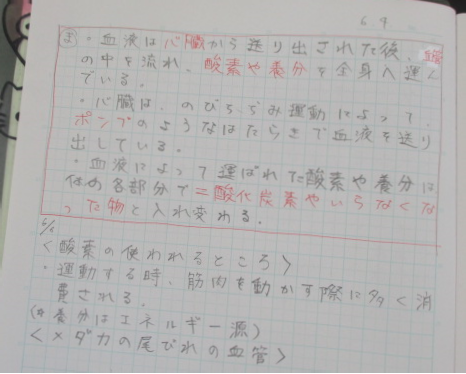 6 4
ま ・血液は心臓から送り出された後、血管
の中を流れ、酸素や養分を全身へ運ん
でいる。
・心臓は、のびちぢみ運動によって、
ポンプのようなはたらきで血液を送り
出している。
・血液によって運ばれた酸素や養分は
体の各部分で二酸化炭素やいらなくな
った物と入れ変わる。
6/4
〈酸素の使われるところ〉
・運動する時、筋肉を動かす際に多く消
費される。
(※養分はエネルギー源)
〈メダカの尾びれの血管〉